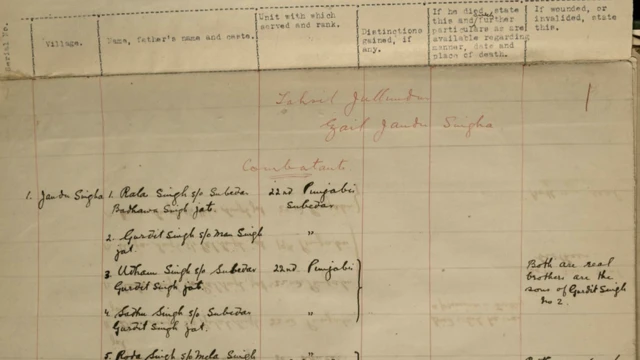 Serial No.
Village.
Name, father's name and caste.
Unit with which
served and rank.
Distinctions
gained, if
any.
If he died, state
this and further
particulars as are
available regarding
manner, date and
place of death.
If wounded, or
invalided, state
this.
Tahsil Jullundur
Zail Jandu Singha
1
Combatants
1. Jandu Singha
1. Rala Singh s/o Subedar
Badhawa Singh jat.
22nd Punjabis
Subedar.
2. Gurdit Singh s/o Man Singh
jat.
"
3. Udham Singh s/o Subedar
Gurdit Singh jat.
22nd Punjabis
4. Sadhu Singh s/o Subedar
Gurdit Singh jat.
"
Both are real
brothers are the
sons of Gurdit Singh
No 2.
5. Roda Singh s/o Mela Singh
"
Both